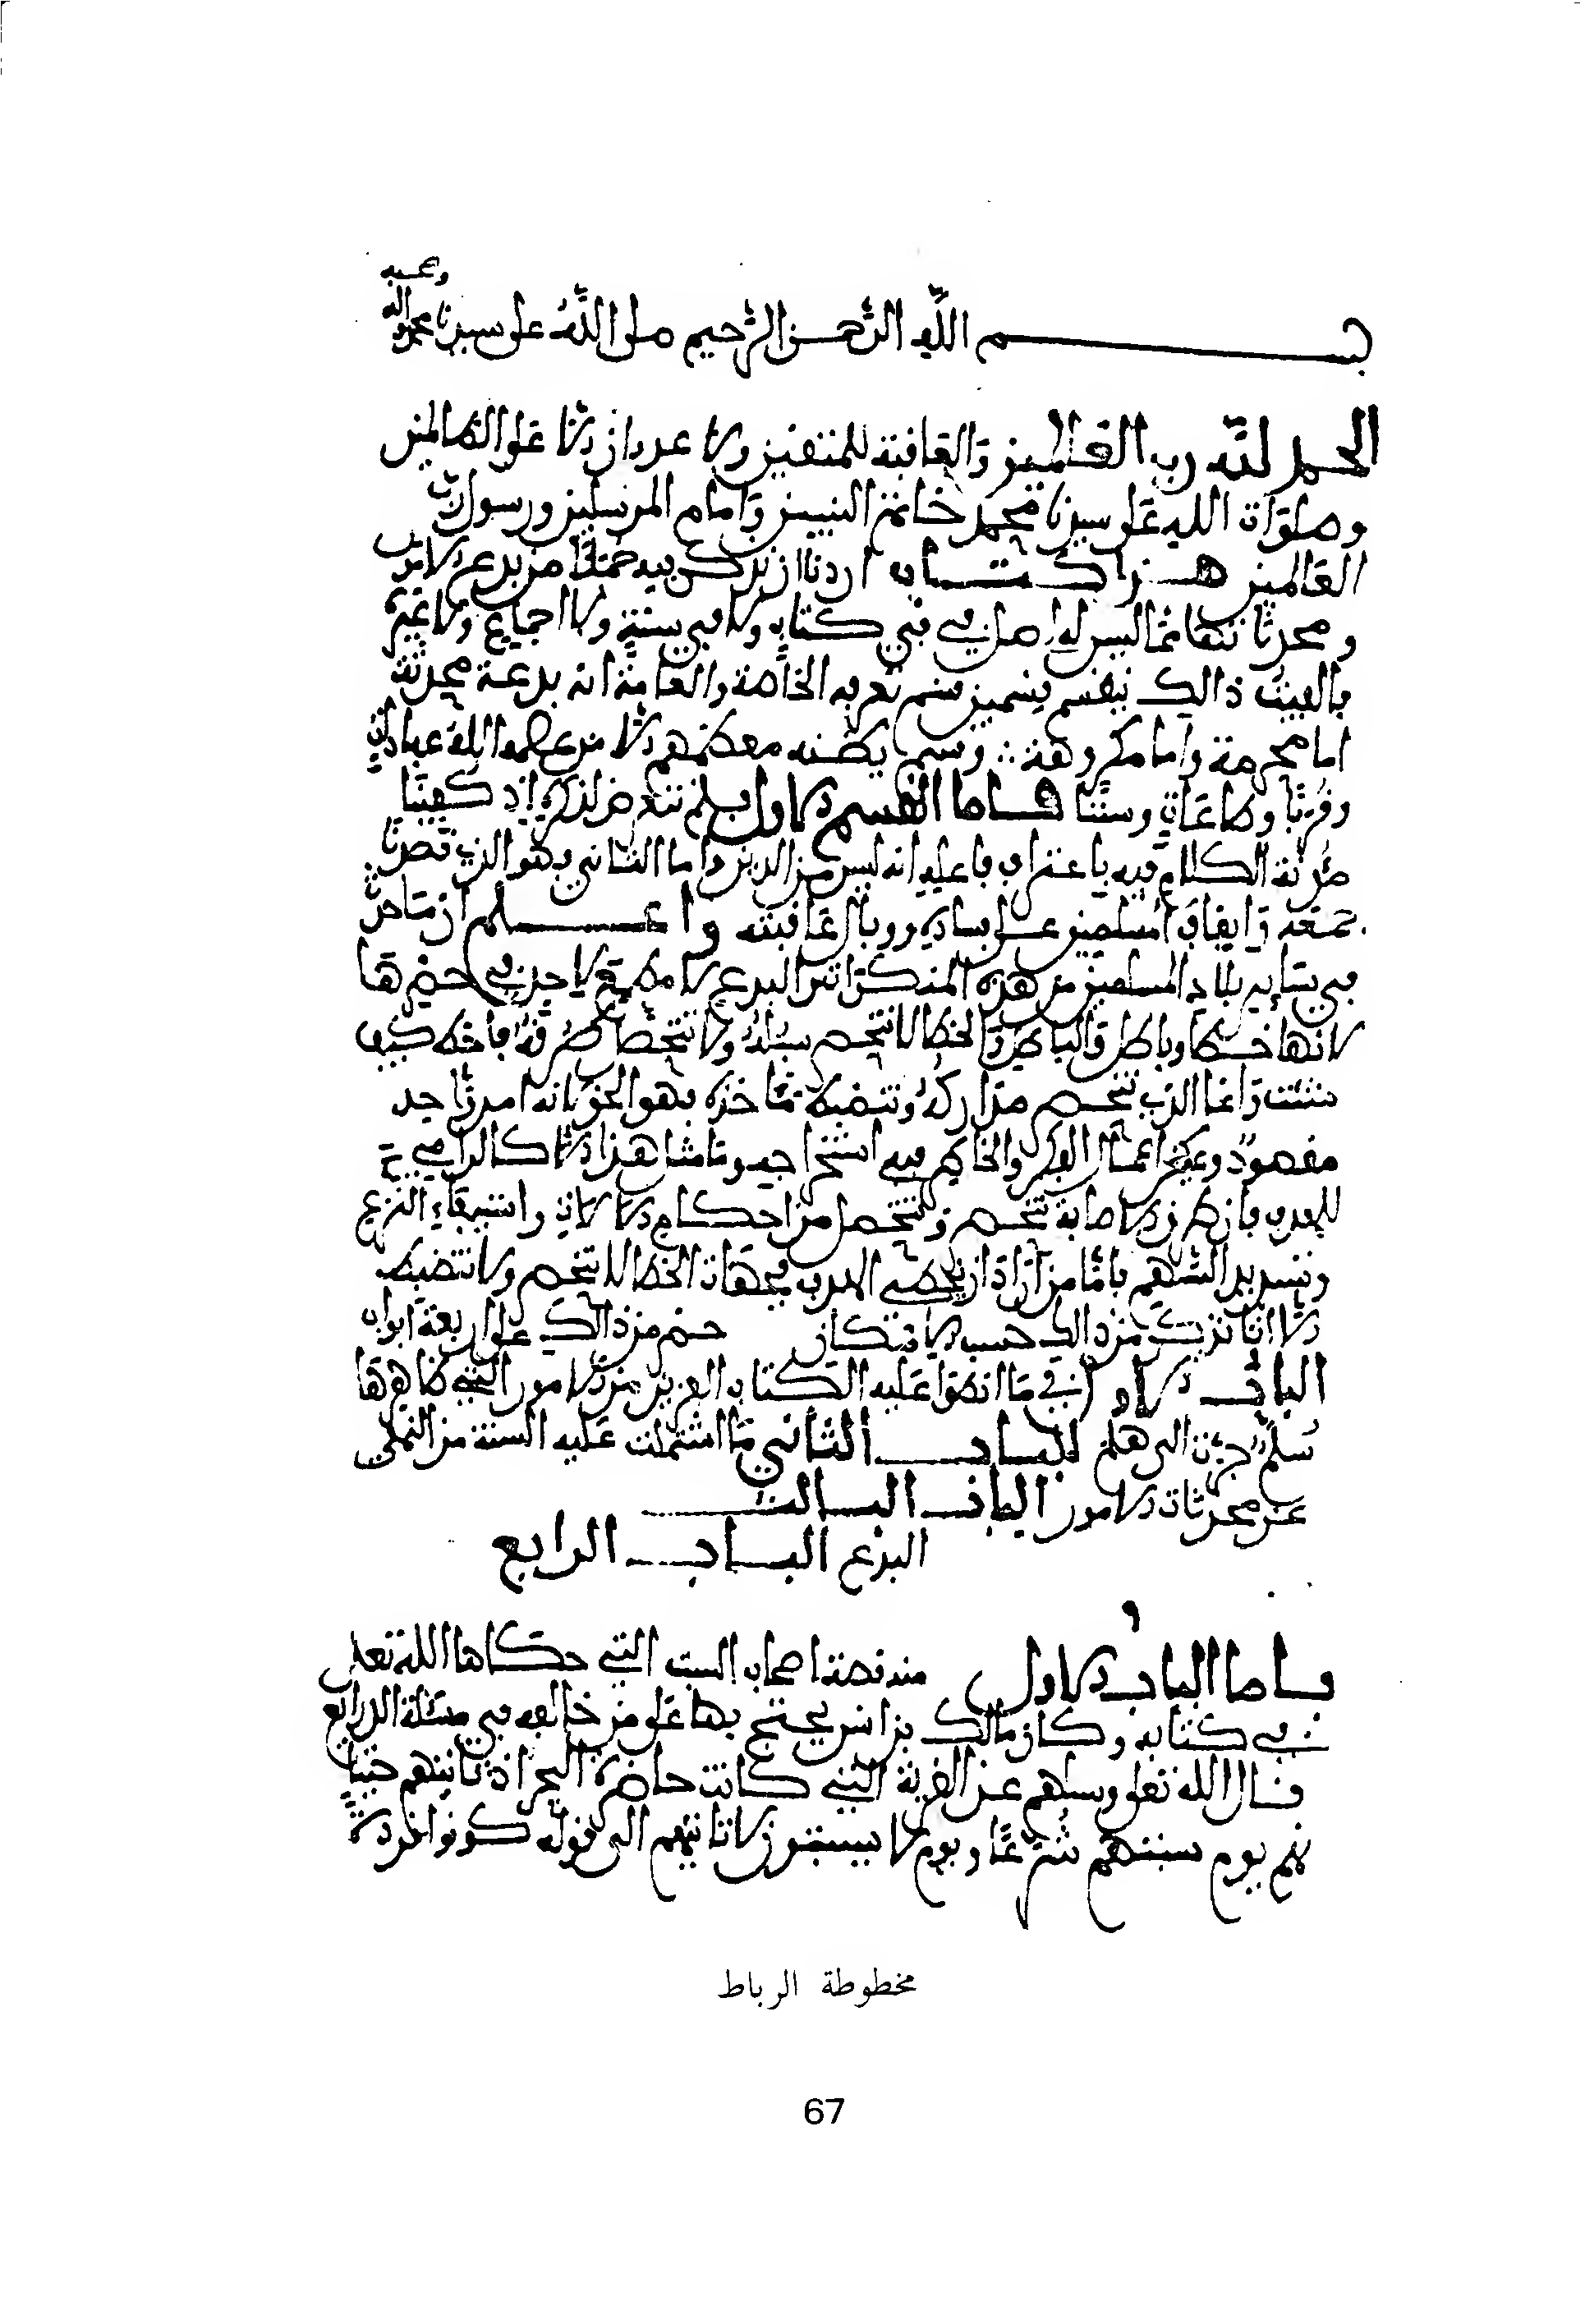 بسم الله الرحمن الرحيم صلى الله على سيدنا محمد وآله وصحبه
الحمد لله رب العالمين والعاقبة للمتقين ولا عدوان الا على الظالمين
وصلوات الله على سيدنا محمد خاتم النبيين وامام المرسلين ورسول رب
العالمين هذا كتاب اردنا ان نذكر فيه جملا من بدع الامور
ومحدثاتها مما ليس له اصل في كتاب ولا في سنة ولا اجماع ولا غيره
فالفيت ذالك ينقسم قسمين قسم تعرفه الخاصة والعامة انه بدعة محدثة
اما محرمة واما مكروهة وقسم يظنه معظمهم الا من عصم الله عبادات
وقربا وطاعات وسننا فاما القسم الاول فلم نتعرض لذكره إذ كفينا
مؤنة الكلام فيه باعتراف فاعليه انه ليس من الدين واما الثاني فهو الذي قصدنا
جمعه وايقاف المسلمين على فساده ووبال عاقبته واعلم ان ما حدث
في ساير بلاد المسلمين من هذه المنكرات البدع لا مطمع لاحد في حصرها
لانها خطأ وباطل والباطل والخطأ لا تنحصر سبله ولا تتحصل طرقه فاخط كيف
شئت وانما الذي تنحصر مداركه وتنضبط مآخذه فهو الحق لانه امر واحد
مقصود ويمكن اعمال الفكر والخاطر فيه استخراجه وما مثل هذا الا كالرامي
للهدف فان طرق الاصابة تنحصر وتتحصل من احكام الالات واستيفاء النزع
وتسديد السهم فاما من اراد ان يخطئ الهدف فجهات الخطأ لا تنحصر ولا تنضبط
الا انا نذكر من ذالك حسب الامكان حصر من ذالك على اربعة ابواب
الباب الاول في ما انطوى عليه الكتاب العزيز من الامور التي ظاهرها
سلم جرت الى هلك الباب الثاني ما اشتملت عليه السنة من النهي
عن محدثات الامور الباب الثالث
البدع الباب الرابع
فاما الباب الاول منه قصة اصحاب السبت التي حكاها الله تعلى
في كتابه وكان مالك بن انس يحتج بها على من خالفه في مسئلة الذرايع
قال الله تعلى وسلهم عن القرية التي كانت حاضرة البحر اذ تاتيهم حيتا
نهم يوم سبتهم شرعا ويوم لا يسبتون لا تاتيهم الى قوله كونوا قردة
مخطوطة الرباط
67